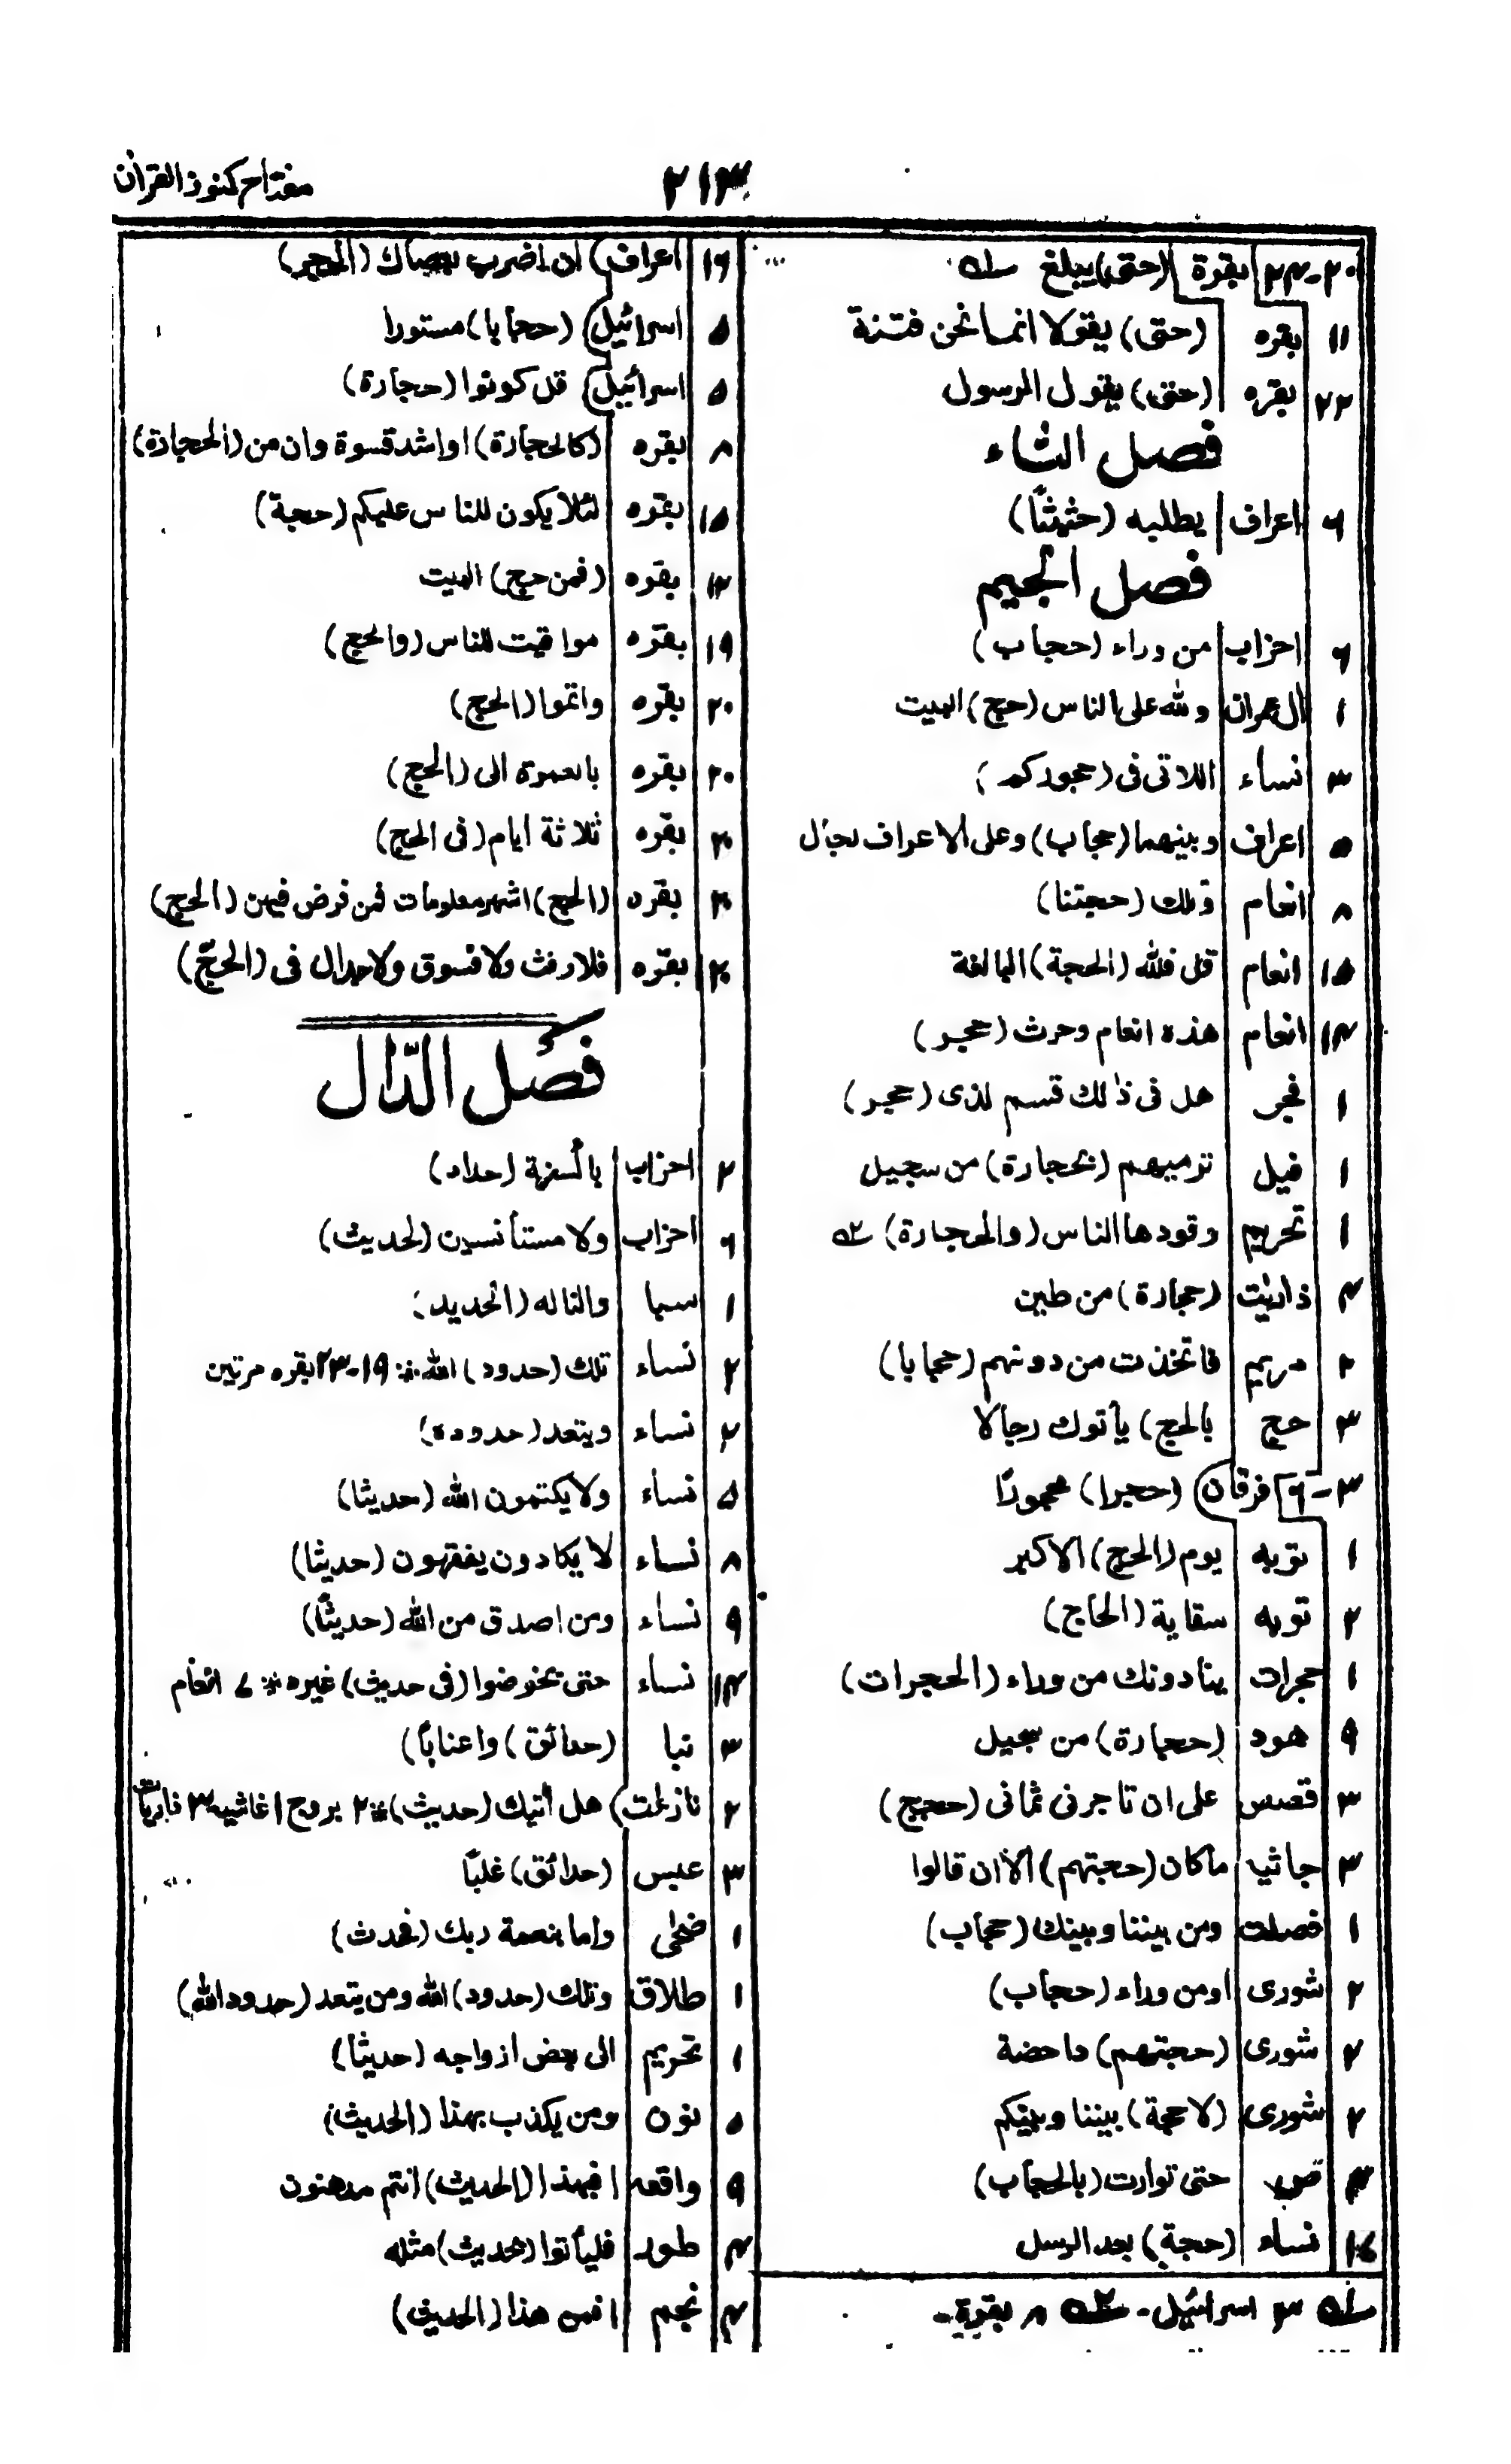 مفتاح کنوز القرآن
۲۱۳
۲۴-۲۰ بقرة (حتى) يبلغ
۱۱ بقره (حتى) يقولا انما نحن فتنة
۲۲ بقره (حتى) يقول الرسول
فصل الثاء
۶ اعراف يطلبه (حثيثًا)
فصل الجيم
۶ احزاب من وراء (حجاب)
۱ ال عمران ولله على الناس (حج) البيت
۳ نساء اللاتى فى (حجوركم)
۵ اعراف وبينهما (حجاب) وعلى الاعراف رجال
۸ انعام وتلك (حجتنا)
۱۵ انعام قل فلله (الحجة) البالغة
۱۴ انعام هذه انعام وحرث (حجر)
۱ فجر هل فى ذالك قسم لذى (حجر)
۱ فيل ترميهم (بحجارة) من سجيل
۱ تحريم وقودها الناس (والحجارة)
۲ ذاريٰت (حجارة) من طين
۲ مريم فاتخذت من دونهم (حجابا)
۳ حج بالحج) يأتوك رجالا
۳-۶ فرقان (حجرا) محجورًا
۱ توبه يوم (الحج) الاكبر
۲ توبه سقاية (الحاج)
۱ حجرات ينادونك من وراء (الحجرات)
۹ هود (حجارة) من سجيل
۳ قصص على ان تاجرنى ثمانى (حجج)
۳ جاثيه ماكان (حجتهم) الا ان قالوا
۱ فصلت ومن بيننا وبينك (حجاب)
۲ شورى اومن وراء (حجاب)
۲ شورى (حجتهم) داحضة
۲ شورى (لا حجة) بيننا وبينكم
۳ ص حتى توارت (بالحجاب)
نساء (حجة) بعد الرسل
۳ اسرائيل- ۸ بقرة-
۱۶ اعراف ان اضرب بعصاك (الحجر)
۵ اسرائيل (حجابا) مستورا
۵ اسرائيل قل كونوا (حجارة)
۸ بقره (كالحجارة) او اشد قسوة وان من (الحجارة)
۱۵ بقره لئلا يكون للناس عليكم (حجة)
بقره (فمن حج) البيت
۱۹ بقره مواقيت للناس (والحج)
۲۰ بقره واتموا (الحج)
۲۰ بقره بالعمرة الى (الحج)
۲۰ بقره ثلاثة ايام (فى الحج)
۲۰ بقره (الحج) اشهر معلومات فمن فرض فيهن (الحج)
۲۰ بقره فلا رفث ولا فسوق ولا جدال فى (الحجّ)
فصل الدّال
۲ احزاب بالسنة (حداد)
۶ احزاب ولا مستأنسين (لحديث)
۱ سبا والنا له (الحديد)
۲ نساء تلك (حدود) الله ۱۹-۲۳ بقره مرتين
۲ نساء ويتعد (حدوده)
۵ نساء ولا يكتمون الله (حديثا)
۸ نساء لا يكادون يفقهون (حديثا)
۹ نساء ومن اصدق من الله (حديثًا)
۱۴ نساء حتى يخوضوا (فى حديث) غيره ۷ انعام
۳ نبا (حدائق) واعنابًا)
۲ نازعٰت هل أتٰيك (حديث) ۲ بروج ۱ غاشيه ۳ ذاريات
۳ عبس (حدائق) غلبًا
۱ ضحٰى واما بنعمة ربك (فحدث)
۱ طلاق وتلك (حدود) الله ومن يتعد (حدود الله)
۱ تحريم الى بعض ازواجه (حديثًا)
۵ نون ومن يكذب بهذا (الحديث)
۹ واقعه افبهذا (الحديث) انتم مدهنون
۲ طور فليأتوا (بحديث) مثله
۲ نجم افمن هذا (الحديث)